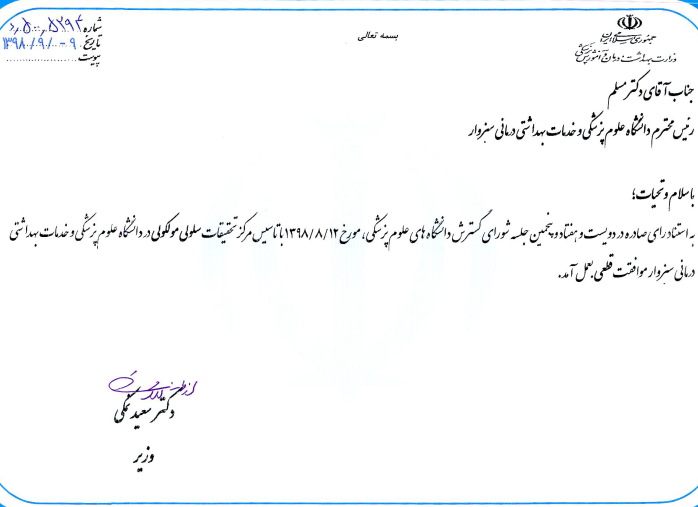 بسمه تعالی
جمهوری اسلامی ایران
وزارت بهداشت، درمان و آموزش پزشکی
شماره
تاریخ ۱۳۹۸/۹/۰۹
پیوست
جناب آقای دکتر مسلم
رئیس محترم دانشگاه علوم پزشکی و خدمات بهداشتی درمانی سبزوار
باسلام و تحیات؛
به استناد رای صادره در دویست و هفتاد و پنجمین جلسه شورای گسترش دانشگاه های علوم پزشکی، مورخ ۱۳۹۸/۸/۱۲ با تاسیس مرکز تحقیقات سلولی مولکولی در دانشگاه علوم پزشکی و خدمات بهداشتی
درمانی سبزوار موافقت قطعی بعمل آمد.
از طرف
دکتر سعید نمکی
وزیر